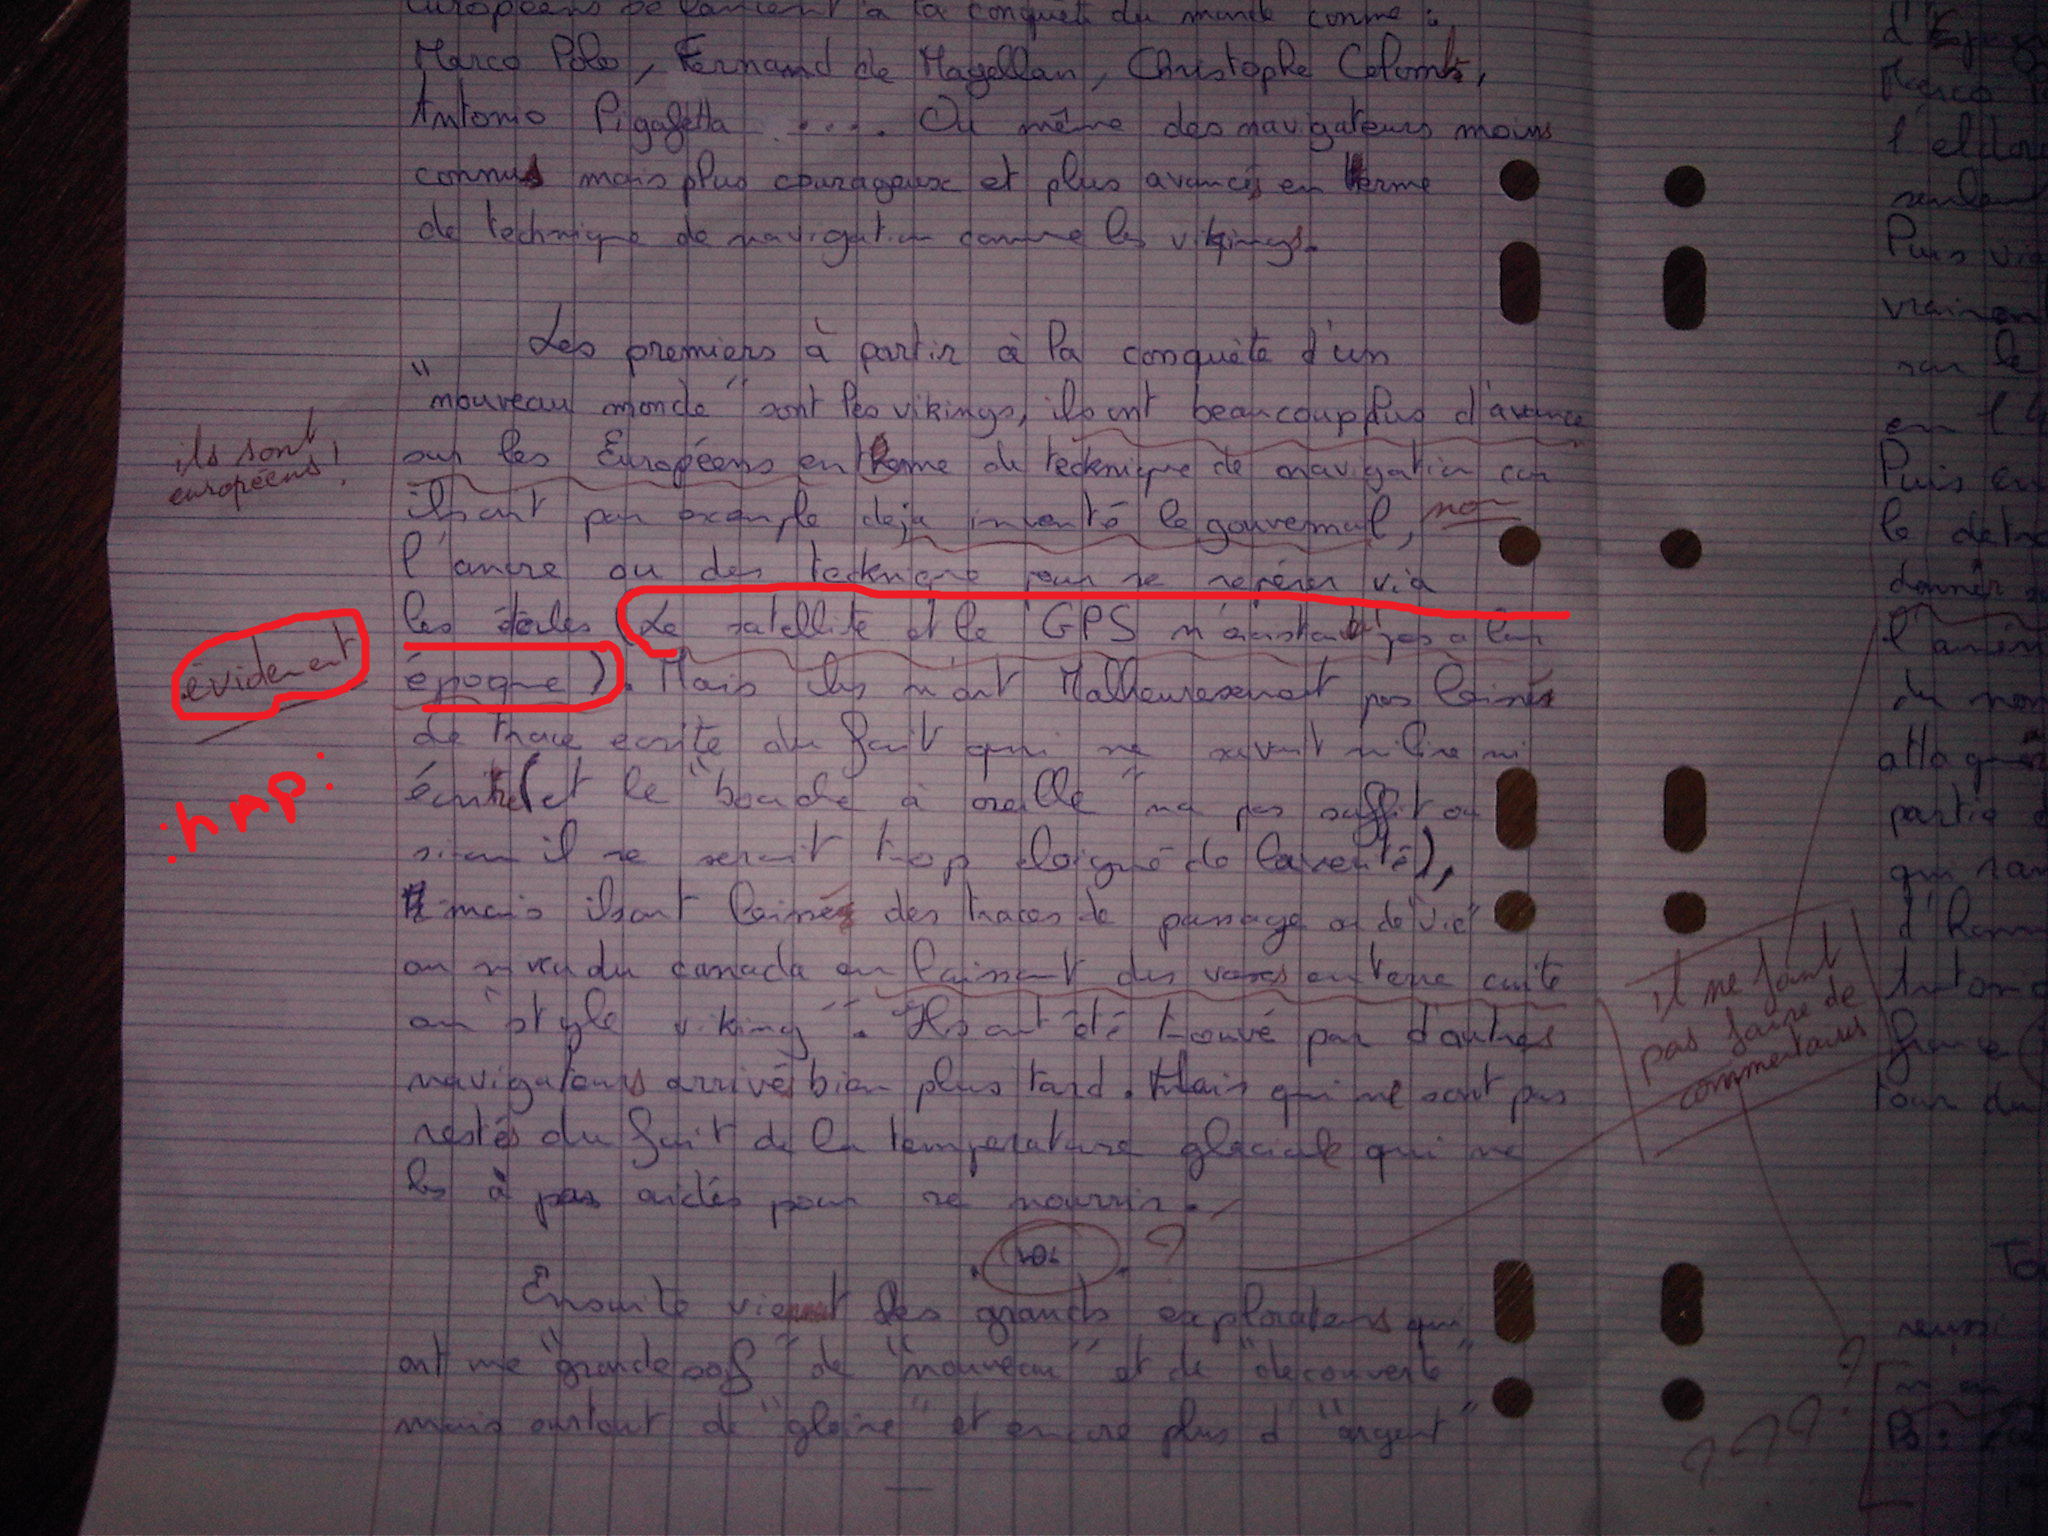 Européens se lancent à la conquête du monde comme :
Marco Polo, Fernand de Magellan, Christophe Colomb,
Antonio Pigafetta ..... Ou même des navigateurs moins
connus mais plus courageux et plus avancés en terme
de technique de navigation comme les vikings.
Les premiers à partir à la conquète d'un
"nouveau monde" sont les vikings, ils ont beaucoup plus d'avance
sur les Européens en terme de technique de navigation car
ils sont européens !
ils ont par exemple deja inventé le gouvernail,
non
l'ancre ou des technique pour se repérer via
les étoiles (Le satellite et le GPS n'existait pas a leur
époque). Mais ils n'ont Malheuresement pas laissé
évidement
:hmp:
de trace ecrite du fait qui ne savent ni lire ni
écrire (et le "bouche à oreille" na pas suffit ou
sinon il se serait trop eloigné de la verité),
mais ils ont laissés des traces de passage ou de "vie"
au niveau du canada en laissant des vases en terre cuite
au "style viking". Ils ont été trouvé par d'autres
navigateurs arrivés bien plus tard. Mais qui ne sont pas
restés du fait de la temperature glaciale qui ne
les à pas aidés pour se nourrir.
il ne faut
pas faire de
commentaires
?
Ensuite viennent les grands explorateurs qui
ont une "grande soif" de "nouveau" et de "decouverte"
mais surtout de "gloire" et encore plus d'"argent"
? ? ? ?
d'Espagn
Marco
l'eldor
seulem
Puis vi
vraimen
sur le
en l'
Puis en
le detr
donner
l'amér
du nom
attaquer
partie
qui
d'
Antoni
france
tour du
To
reussi